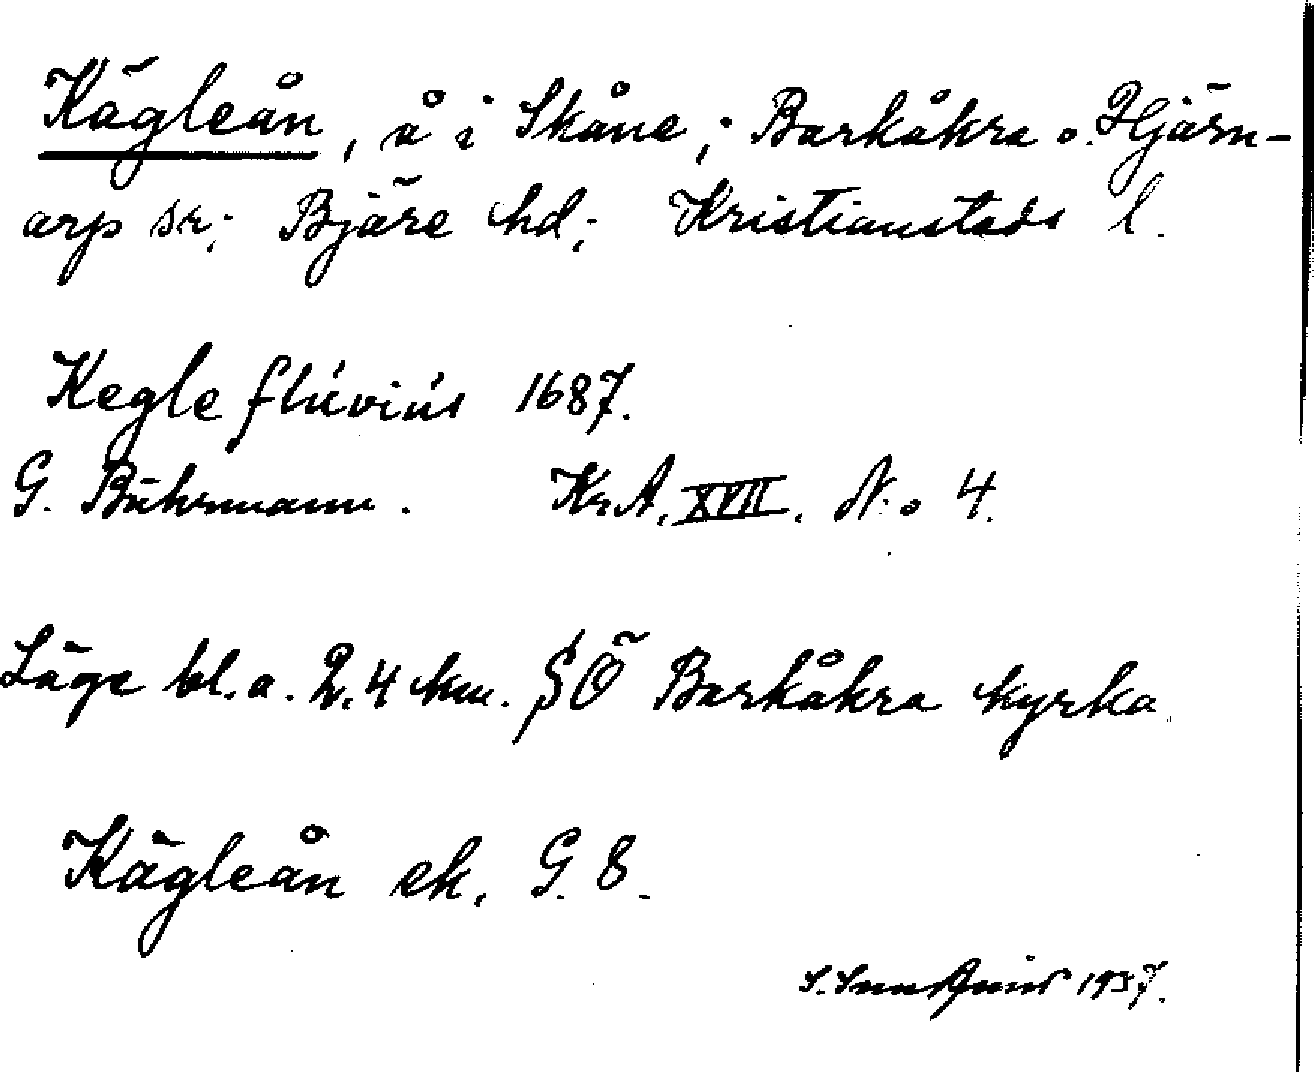 Kägleån, å i Skåne; Barkåkra o. Hjärn-
arp sr; Bjäre hd; Kristianstads l.
Kegle flúviús 1687.
G. Bührmann. Kr.A. XVII. N:o 4.
Läge bl.a. 2,4 km. SÖ Barkåkra kyrka
Kägleån ek. G. 8.
S. 1937.